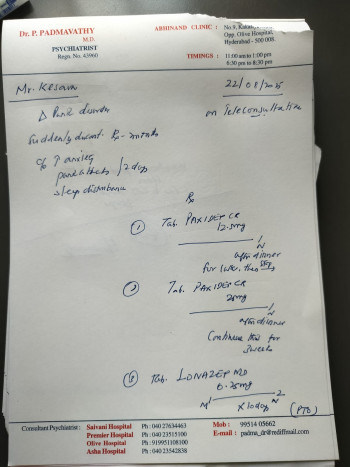 Dr. P. PADMAVATHY
M.D.
PSYCHIATRIST
Regn. No. 43960
ABHINAND CLINIC :
No.9,
Opp. Olive Hospital,
Hyderabad - 500 008.
TIMINGS :
11:00 am to 1:00 pm
6:30 pm to 8:30 pm
Mr. Kesava
22/08/2025
Δ Panic disorder
on Teleconsultation
Suddenly discont. Rx -
c/o ↑ anxiety
panic attacks / 2 days
sleep disturbance
Rx
① Tab. PAXIDEP CR
12.5mg
1
N
after dinner
for 1 week, then stop
② Tab. PAXIDEP CR
25mg
1
N
after dinner
Continue that for
3 weeks
③ Tab. LONAZEP MD
0.25mg
M 1 2 N
X 10 days
(PTO)
Consultant Psychiatrist :
Saivani Hospital Ph : 040 27634463
Premier Hospital Ph : 040 23515100
Olive Hospital Ph : 919951108100
Asha Hospital Ph : 040 23542838
Mob : 99514 05662
E-mail : padma_dr@rediffmail.com